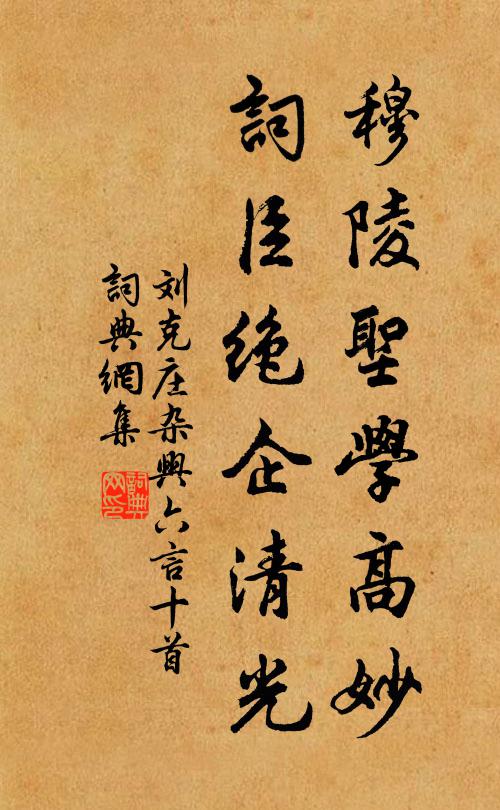 穆陵聖學高妙
詞臣绝企清光
刘克庄杂興六言十首
詞典網集
詞典网印